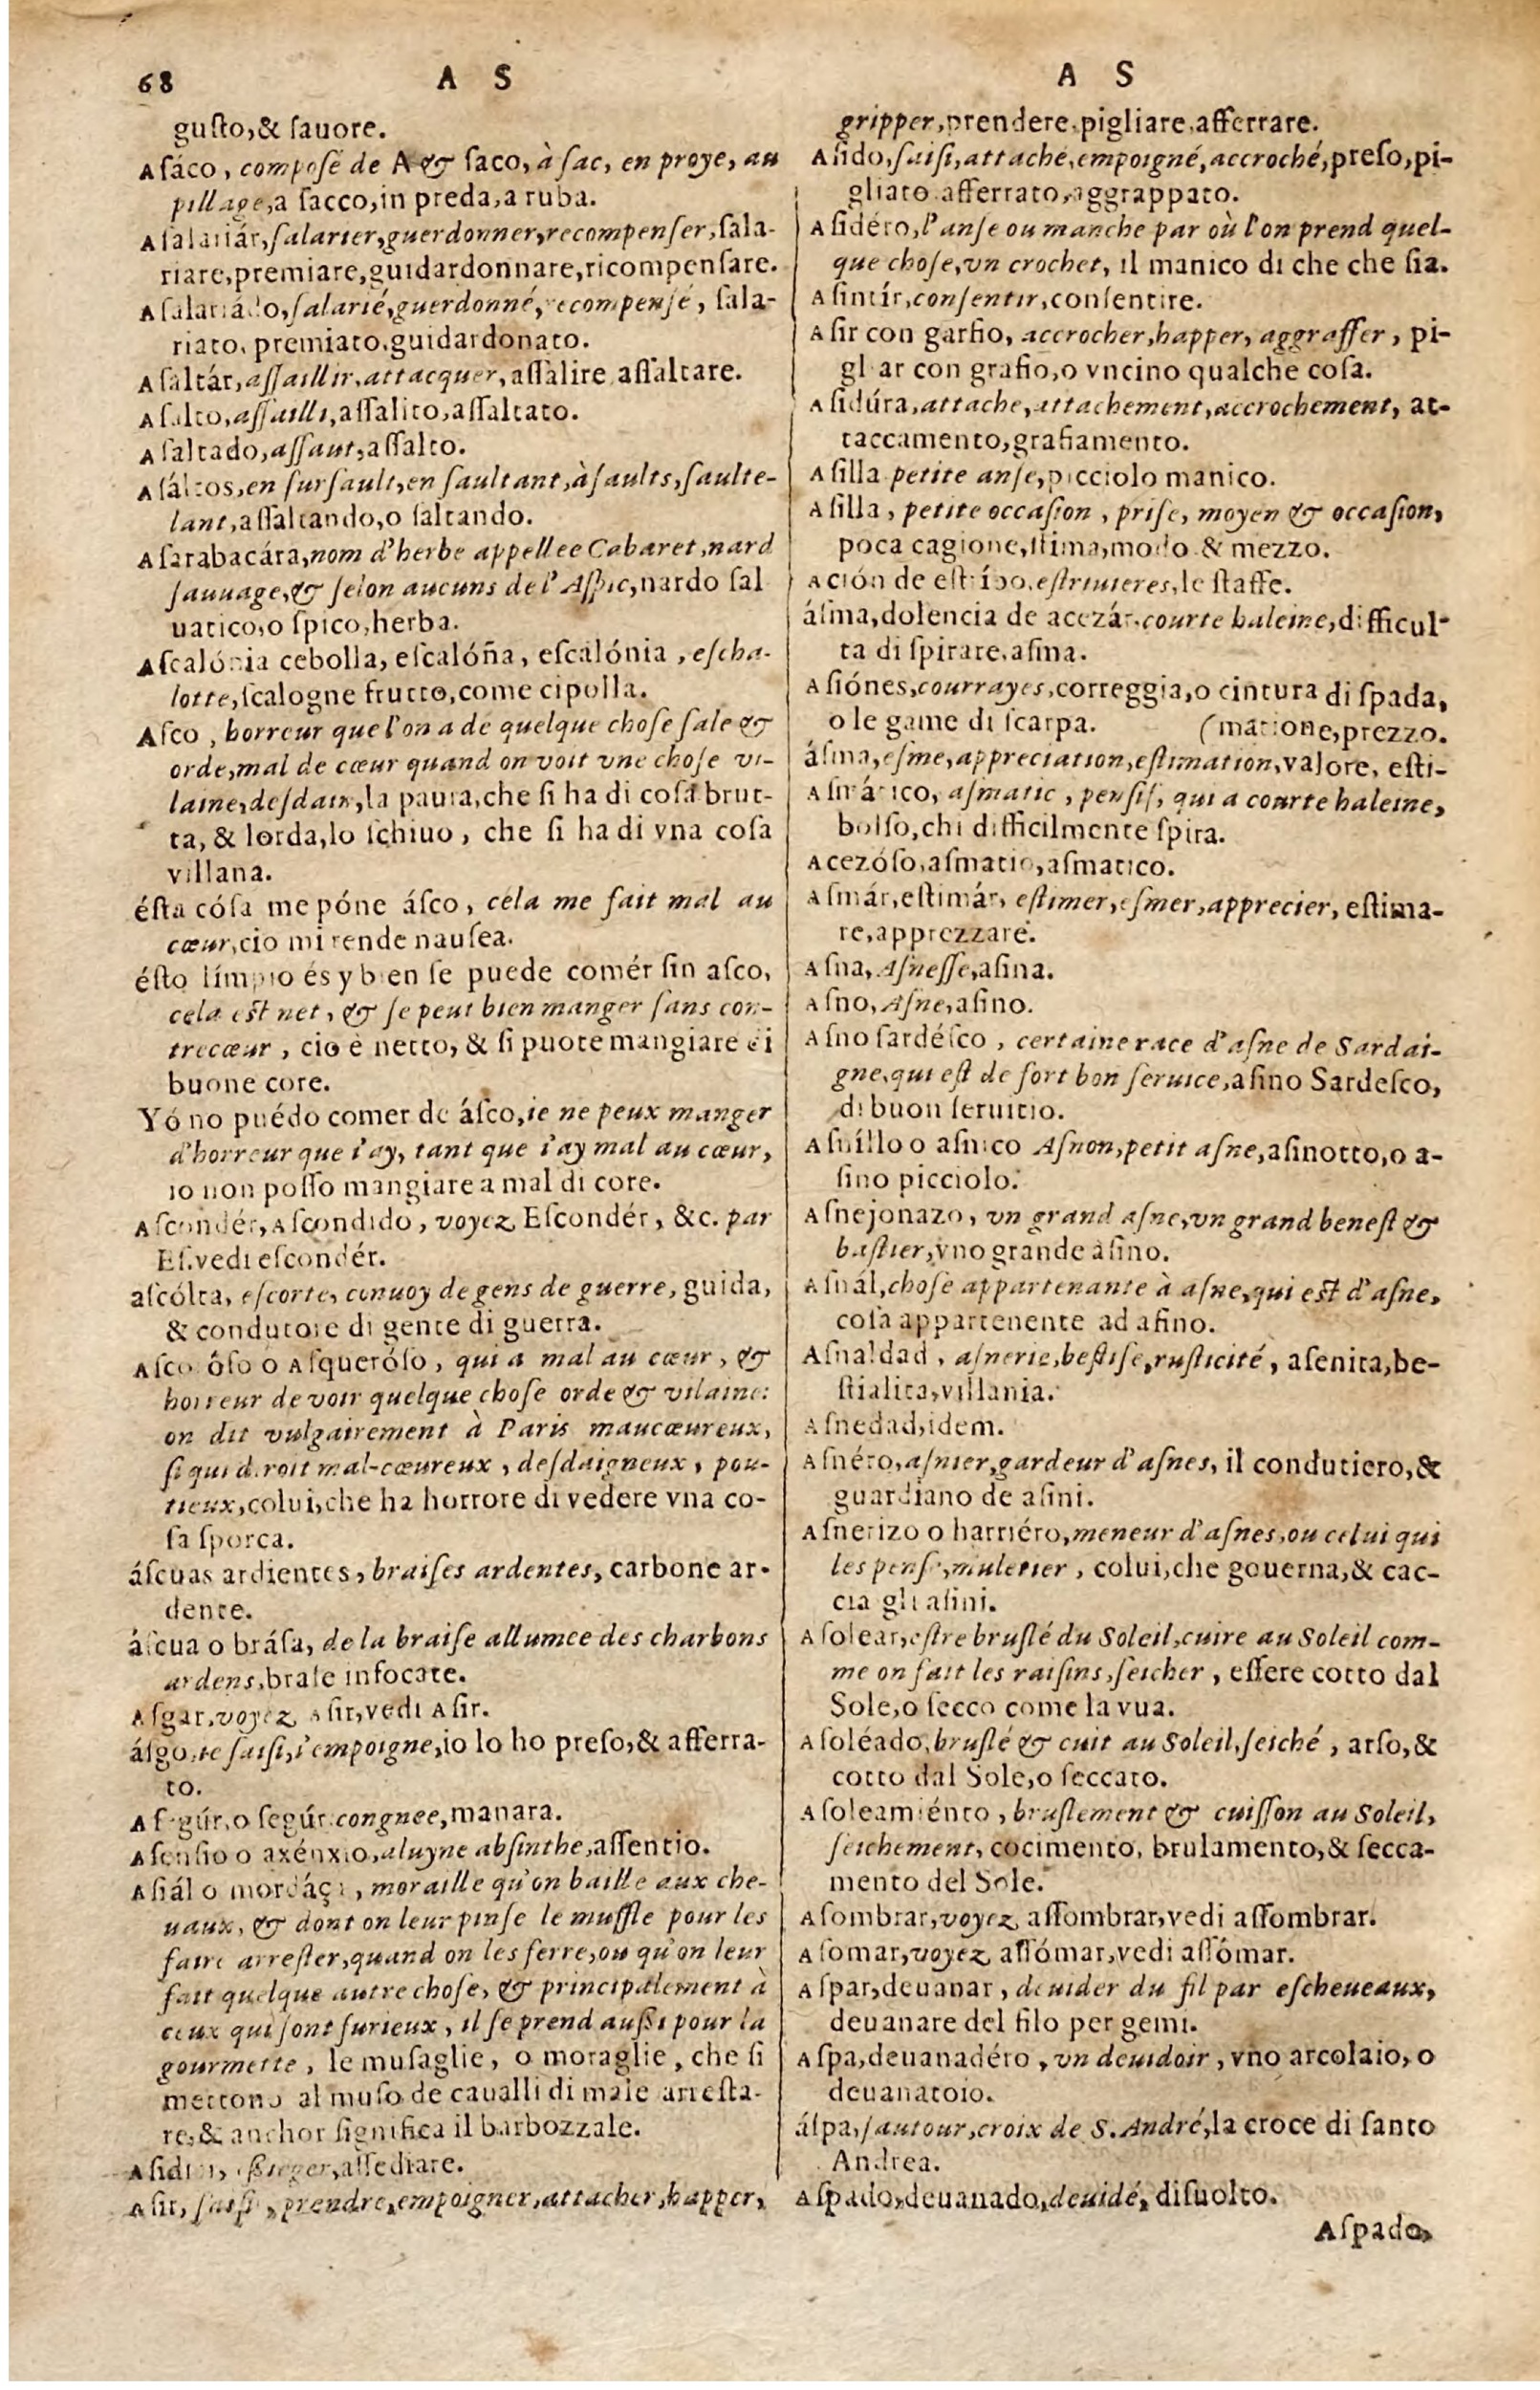 68 A S
guſto,& ſauore.
Aſáco, compoſé de A & ſaco, à ſac, en proye, au
pillage,a ſacco,in preda,a ruba.
Aſalariár,ſalarier,guerdonner,recompenſer,ſala-
riare,premiare,guidardonnare,ricompenſare.
Aſalariádo,ſalarié,guerdonné,recompenſé, ſala-
riato, premiato,guidardonato.
Aſaltár,aſſaillir,attacquer,aſſalire aſſaltare.
Aſalto,aſſailli,aſſalito,aſſaltato.
Aſaltado,aſſaut,aſſalto.
Aſáltos,en ſurſault,en ſaultant,à ſaults,ſaulte-
lant,aſſaltando,o ſaltando.
Aſarabacára,nom d'herbe appellee Cabaret,nard
ſauuage,& ſelon aucuns de l'Aſpic,nardo ſal
uatico,o ſpico,herba.
Aſcalónia cebolla, eſcalóña, eſcalónia, eſcha-
lotte,ſcalogne frutto,come cipolla.
Aſco, horreur que l'on a de quelque choſe ſale &
orde,mal de cœur quand on voit vne choſe vi-
laine,deſdain,la paura,che ſi ha di coſa brut-
ta, & lorda,lo ſchiuo, che ſi ha di vna coſa
villana.
éſta cóſa me póne áſco, cela me fait mal au
cœur,cio mi rende nauſea.
éſto límpio és y bien ſe puede comér ſin aſco,
cela est net, & ſe peut bien manger ſans con-
trecœur, cio è netto, & ſi puote mangiare di
buone core.
Yó no puédo comer de áſco,ie ne peux manger
d'horreur que i'ay, tant que i'ay mal au cœur,
io non poſſo mangiare a mal di core.
Aſcondér, Aſcondido, voyez Eſcondér, &c. par
Eſ.vedi eſcondér.
aſcólta, eſcorte, conuoy de gens de guerre, guida,
& condutore di gente di guerra.
Aſcoróſo o Aſqueróſo, qui a mal au cœur, &
horreur de voir quelque choſe orde & vilaine:
on dit vulgairement à Paris maucœureux,
ſi qui diroit mal-cœureux, deſdaigneux, pou-
tieux,colui,che ha horrore di vedere vna co-
ſa ſporca.
áſcuas ardientes, braiſes ardentes, carbone ar-
dente.
áſcua o bráſa, de la braiſe allumee des charbons
ardens,braſe infocate.
Aſgar,voyez Aſir,vedi Aſir.
áſgo,ie ſaiſi,i'empoigne,io lo ho preſo,& afferra-
to.
Aſegúr,o ſegúr,congnee,manara.
Aſenſio o axénxio,aluyne abſinthe,aſſentio.
Aſiál o mordáça, moraille qu'on baille aux che-
uaux, & dont on leur pinſe le muffle pour les
faire arreſter,quand on les ferre,ou qu'on leur
fait quelque autre choſe, & principalement à
ceux qui ſont furieux, il ſe prend auſſi pour la
gourmette, le muſaglie, o moraglie, che ſi
mettono al muſo de caualli di male arreſta-
re,& anchor ſignifica il barbozzale.
aſſediare.
Aſir, ſaiſir, prendre,empoigner,attacher,happer,
A S
gripper,prendere,pigliare,afferrare.
Aſido,ſaiſi,attaché,empoigné,accroché,preſo,pi-
gliato afferrato,aggrappato.
Aſidéro,l'anſe ou manche par où l'on prend quel-
que choſe,vn crochet, il manico di che che ſia.
Aſintír,conſentir,conſentire.
Aſir con garfio, accrocher,happer, aggraffer, pi-
gliar con grafio,o vncino qualche coſa.
Aſidúra,attache,attachement,accrochement, at-
taccamento,grafiamento.
Aſilla petite anſe,picciolo manico.
Aſilla, petite occaſion, priſe, moyen & occaſion,
poca cagione,ſtima,modo & mezzo.
Ación de eſtríbo,eſtriuieres,le ſtaffe.
áſma,dolencia de acezár,courte haleine,difficul-
ta di ſpirare,aſma.
Aſiónes,courrayes,correggia,o cintura di ſpada,
o le game di ſcarpa. (matione,prezzo.
áſma,eſme,appreciation,eſtimation,valore, eſti-
Aſmático, aſmatic, penſif, qui a courte haleine,
bolſo,chi difficilmente ſpira.
Acezóſo,aſmatic,aſmatico.
Aſmár,eſtimár, eſtimer,eſmer,apprecier, eſtima-
re,apprezzare.
Aſna, Aſneſſe,aſina.
Aſno, Aſne,aſino.
Aſno ſardéſco, certaine race d'aſne de Sardai-
gne,qui eſt de fort bon ſeruice,aſino Sardeſco,
di buon ſeruitio.
Aſníllo o aſnico Aſnon,petit aſne,aſinotto,o a-
ſino picciolo.
Aſnejonazo, vn grand aſne,vn grand beneſt &
baſtier,vno grande aſino.
Aſnál,choſe appartenante à aſne,qui est d'aſne,
coſa appartenente ad aſino.
Aſnaldad, aſnerie,beſtiſe,ruſticité, aſenita,be-
ſtialita,villania.
Aſnedad,idem.
Aſnéro,aſnier,gardeur d'aſnes, il condutiero,&
guardiano de aſini.
Aſnerizo o harriéro,meneur d'aſnes,ou celui qui
les penſe,muletier, colui,che gouerna,& cac-
cia gli aſini.
Aſolear,eſtre bruſlé du Soleil,cuire au Soleil com-
me on fait les raiſins,ſeicher, eſſere cotto dal
Sole,o ſecco come la vua.
Aſoléado,bruſlé & cuit au Soleil,ſeiché, arſo,&
cotto dal Sole,o ſeccato.
Aſoleamiénto, bruſlement & cuiſſon au Soleil,
ſeichement, cocimento, brulamento,& ſecca-
mento del Sole.
Aſombrar,voyez aſſombrar,vedi aſſombrar.
Aſomar,voyez aſſómar,vedi aſſómar.
Aſpar,deuanar, deuider du fil par eſcheueaux,
deuanare del filo per gemi.
Aſpa,deuanadéro, vn deuidoir, vno arcolaio, o
deuanatoio.
áſpa,ſautour,croix de S.André,la croce di ſanto
Andrea.
Aſpado,deuanado,deuidé, diſuolto.
Aſpado,